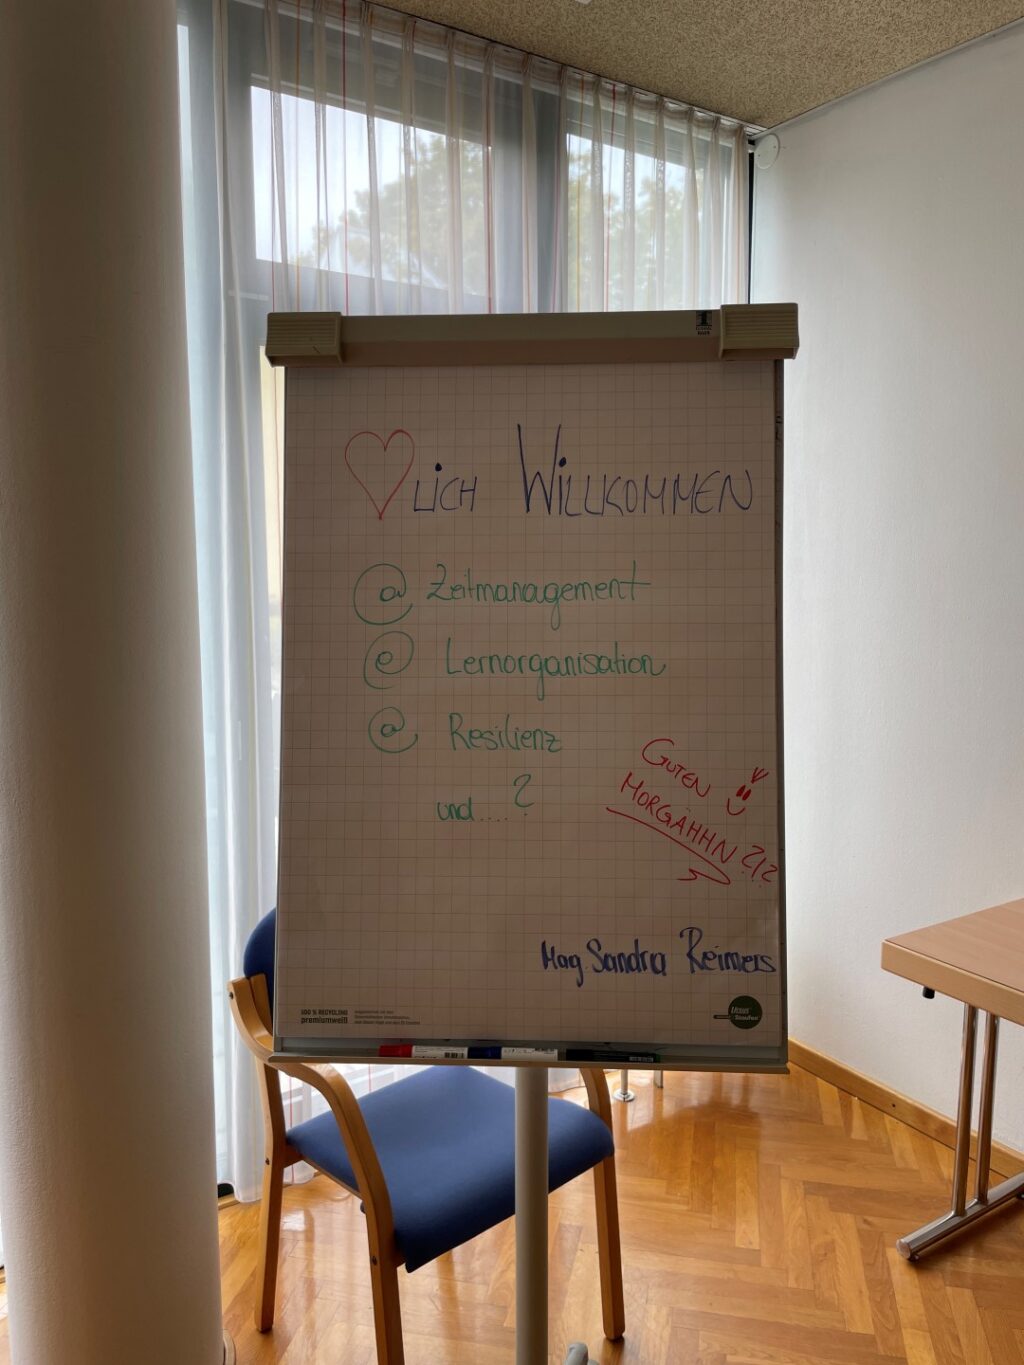 ♡LICH WILLKOMMEN
@ Zeitmanagement
@ Lernorganisation
@ Resilienz
und....?
GUTEN
MORGÄHHN ?!?
Mag. Sandra Reimers
100 % RECYCLING
premiumweiß